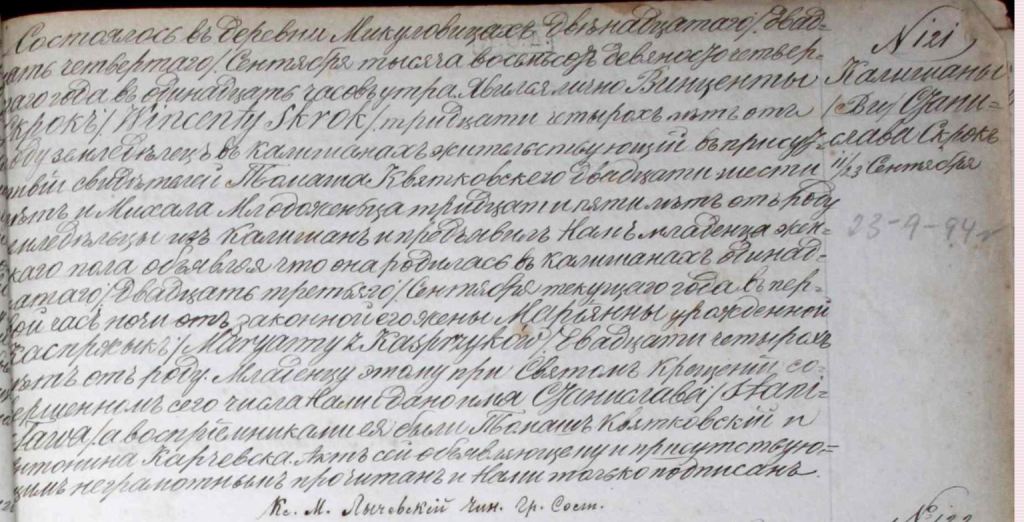 Состоялось въ деревни Микуловицахъ двѣнадцатаго/двад-
цать четвертаго/Сентября тысяча восемьсотъ девяносто четвер-
таго года въ одинадцать часовъ утра. Явился лично Винценты
Скрокъ/Wincenty Skrok/тридцати четырохъ лѣтъ отъ
роду земледѣлецъ въ Калишанахъ жительствующій въ присут-
ствіи свидѣтелей Томаша Квятковскего двадцати шести
лѣтъ и Михала Млодоженца тридцати пяти лѣтъ отъ роду
земледѣльцы изъ Калишанъ и предъявилъ Намъ младенца жен-
скаго пола объявляя что она родилась въ Калишанахъ одинад-
цатаго/двадцать третьяго/Сентября текущаго года въ пер-
вой часъ ночи отъ законной его жены Марьянны урожденной
Каспржыкъ/Maryanny z Kasprzyków/двадцати четырохъ
лѣтъ отъ роду. Младенцу этому при Святомъ Крещеніи, со-
вершенномъ сего числа Нами дано имя Станислава/Stani-
sława/а воспріемниками ея были Томашъ Квятковскій и
Антонина Карчевска. Актъ сей объявляющему и присутствую-
щимъ неграмотнымъ прочитанъ и Нами только подписанъ.
Кс. М. Лычевскій Чин. Гр. Сост.
N 121
Калишаны
Ви/Стани-
слава Скрокъ
11/23 Сентября
23-9-94 г